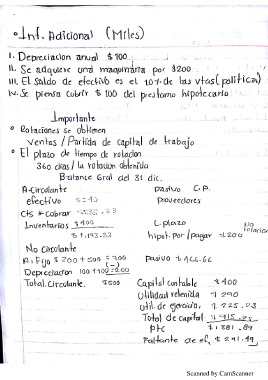 ° Inf. Adicional (Miles)
I. Depreciacion anual $100
II. Se adquiere una maquinaria por $200
III. El saldo de efectivo es el 10% de las vtas (politica)
IV. Se piensa cubrir $100 del prestamo hipotecario
Importante
° Rotaciones se obtienen
Ventas / Partida de capital de trabajo
° El plazo de tiempo de rotacion
360 dias / la rotacion obtenida
Balance Gral del 31 dic.
A. Circulante
Pasivo C.P.
efectivo
proveedores
Cts * Cobrar
Inventarios $400
L. plazo
No rotacion
$1,193.33
hipot. por/pagar $200
No Circulante
A. Fijo $200+500=700
Pasivo $466.66
(-)
Depreciacion 100+100=200
Total. Circulante. $500
Capital contable $400
Utilidad retenida $290
Util. de ejercicio. $225.23
Total de capital $915.23
P+C $1381.89
Faltante de ef. $291.49
Scanned by CamScanner